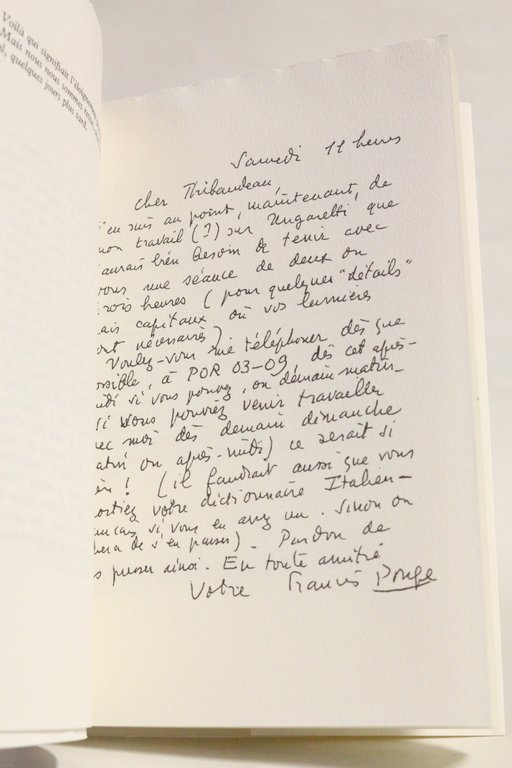 Voilà qui signifiait
Mais nous nous sommes
quelques jours plus tard.
Samedi 11 heures
cher Thibaudeau,
J'en suis au point, maintenant, de
mon travail (?) sur Ungaretti, que
j'aurais bien besoin de tenir avec
vous une séance de deux ou
trois heures (pour quelques "détails"
mais capitaux où vos lumières
sont nécessaires).
Voulez-vous me téléphoner dès que
possible, à POR 03-09, dès cet après-
midi si vous pouvez, ou demain matin
si vous pouviez venir travailler
avec moi dès demain dimanche
matin ou après-midi) ce serait si
bien ! (il faudrait aussi que vous
portiez votre dictionnaire Italien-
français si vous en avez un. Sinon on
de s'en passer). Pardon de
presser ainsi. En toute amitié
Votre Francis Ponge